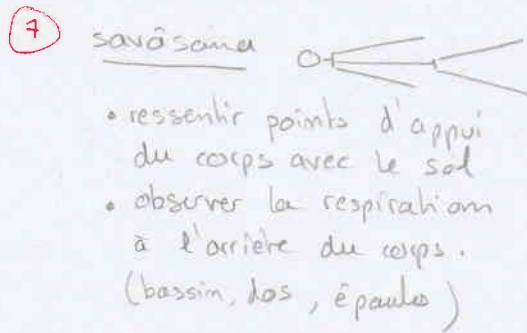 7
savâsana
• ressentir points d'appui
du corps avec le sol
• observer la respiration
à l'arrière du corps.
(bassin, dos, épaules)